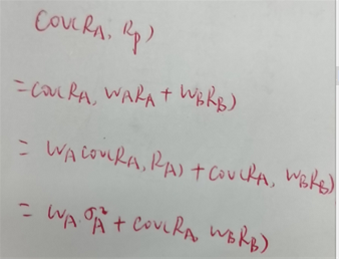 Cov(RA, Rp)
= cov(RA, WARA + WBRB)
= WA cov(RA, RA) + cov(RA, WBRB)
= WA · σA² + cov(RA, WBRB)